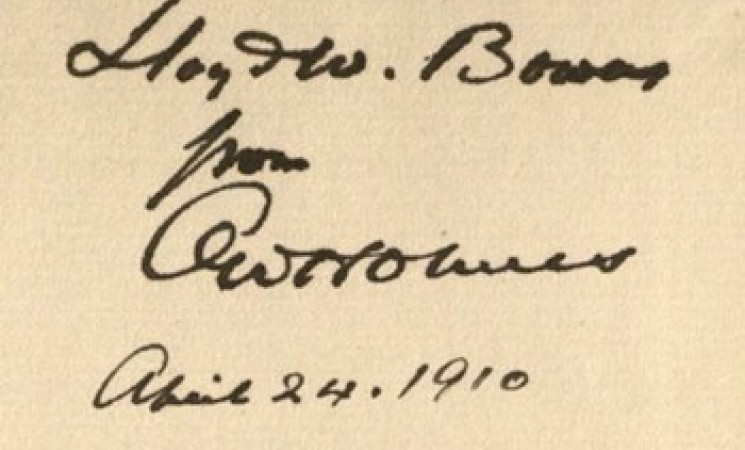 Lloyd W. Bowers
from
O W Holmes
April 24. 1910